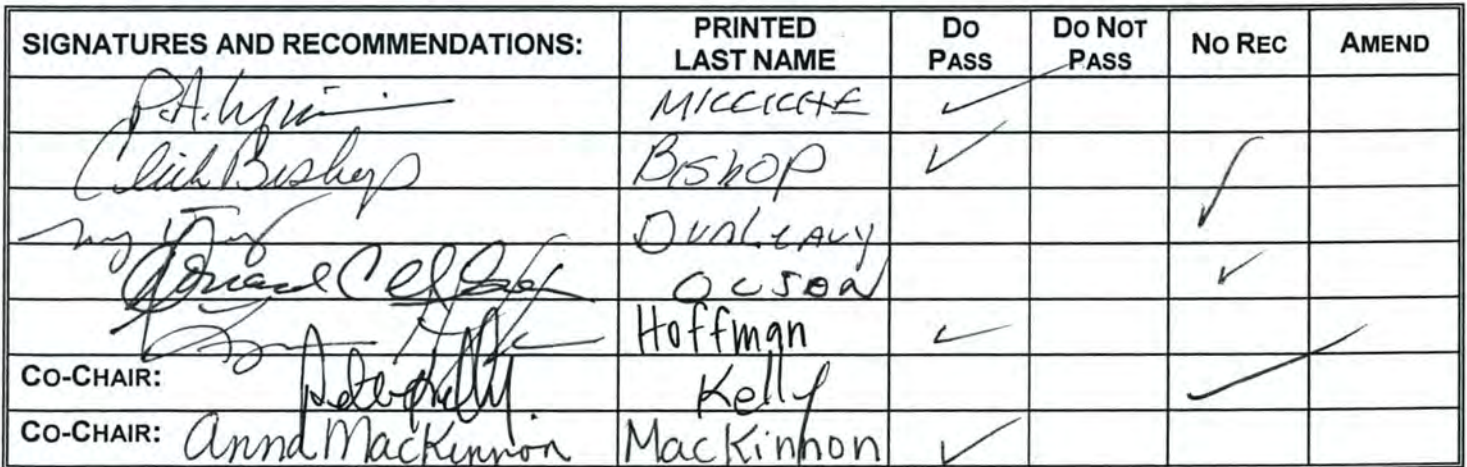 SIGNATURES AND RECOMMENDATIONS: PRINTED LAST NAME DO PASS DO NOT PASS NO REC AMEND
MICCICHE ✓
Click Bishop BISHOP ✓
DUNLEAVY ✓
Donald C Olson OLSON ✓
Hoffman ✓
CO-CHAIR: Pete Kelly Kelly ✓
CO-CHAIR: Anna MacKinnon MacKinnon ✓